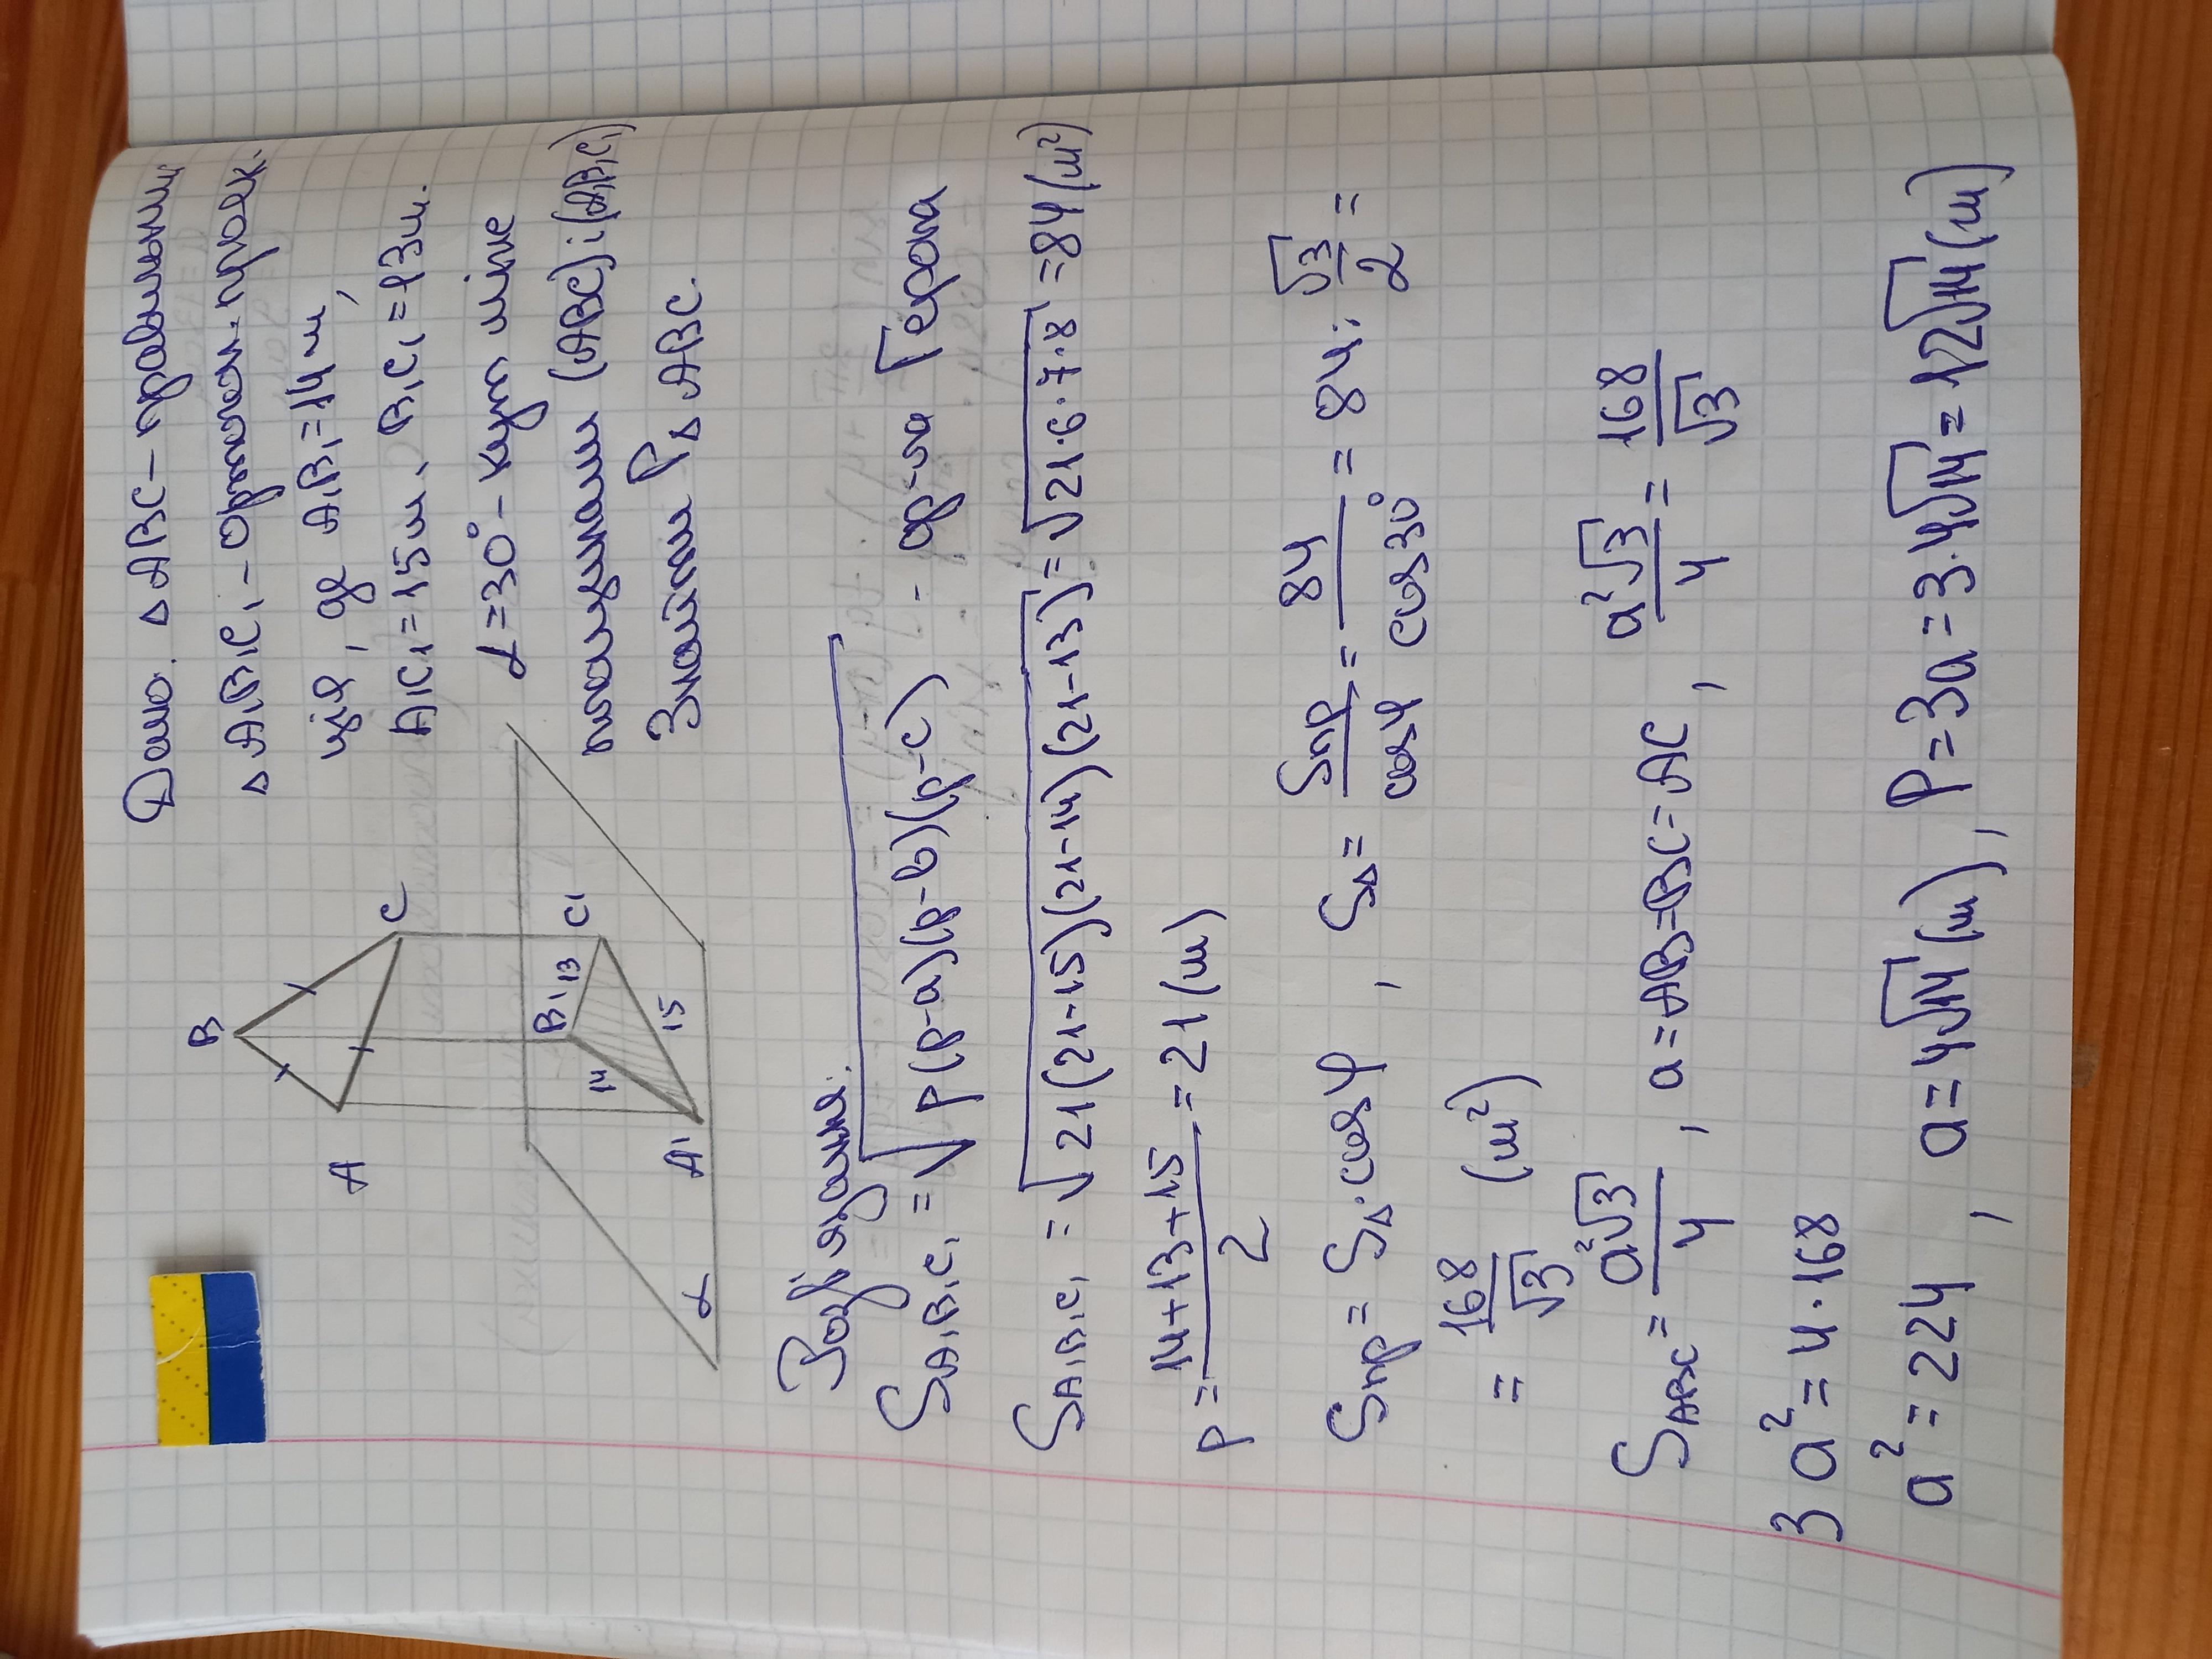 Дано. △ABC – правильний
△A₁B₁C₁ – ортогон. проек-
ція, де A₁B₁ = 14 м,
A₁C₁ = 15 м, B₁C₁ = 13 м.
α = 30° – кут між
площинами (ABC) і (A₁B₁C₁)
Знайти P△ABC.
B
A
C
B₁
13
C₁
14
15
A₁
α
Розв'язання.
S A₁B₁C₁ = √(p(p-a)(p-b)(p-c)) - ф-ла Герона
S A₁B₁C₁ = √(21(21-15)(21-14)(21-13)) = √(21·6·7·8) = 84 (м²)
p = (14+13+15)/2 = 21 (м)
Sпр = S△·cosφ , S△ = Sпр/cosφ = 84/cos30° = 84 : √3/2 =
= 168/√3 (м²)
S ABC = a²√3/4 , a = AB = BC = AC , a²√3/4 = 168/√3
3a² = 4·168
a² = 224 , a = 4√14 (м) , P = 3a = 3·4√14 = 12√14 (м)